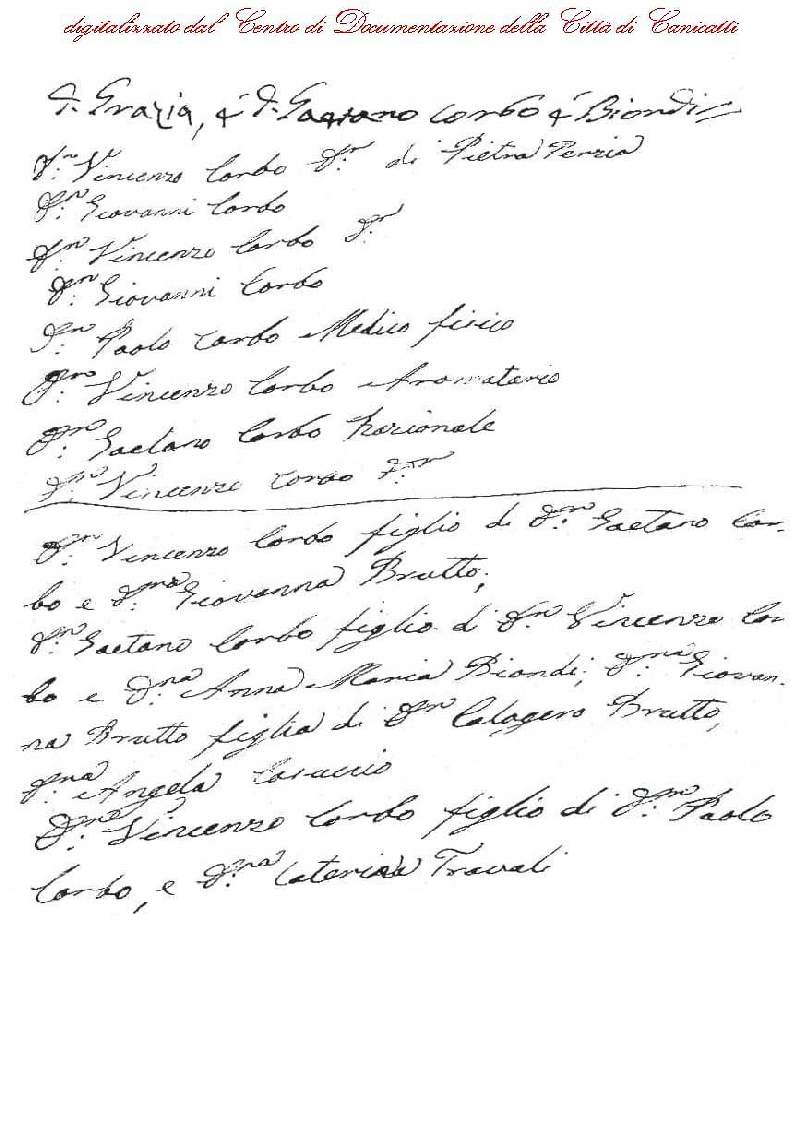 digitalizzato dal Centro di Documentazione della Città di Canicattì
D. Grazia, & D. Gaetano Corbo & Biondi
D.n Vincenzo Corbo D.r di Pietra Perzia
D.n Giovanni Corbo
D.n Vincenzo Corbo D.r
D.n Giovanni Corbo
D.n Paolo Corbo Medico fisico
D.n Vincenzo Corbo Aromatario
D.n Gaetano Corbo Razionale
D.n Vincenzo Corbo
D.n Vincenzo Corbo figlio di D.n Gaetano Cor-
bo e D.na Giovanna Brutto;
D.n Gaetano Corbo figlio di D.n Vincenzo Cor
bo e D.na Anna Maria Biondi; D.na Giovan-
na Brutto figlia di D.n Calogero Brutto,
D.na Angela
D.n Vincenzo Corbo figlio di D.n Paolo
Corbo, e D.na Caterina Travali